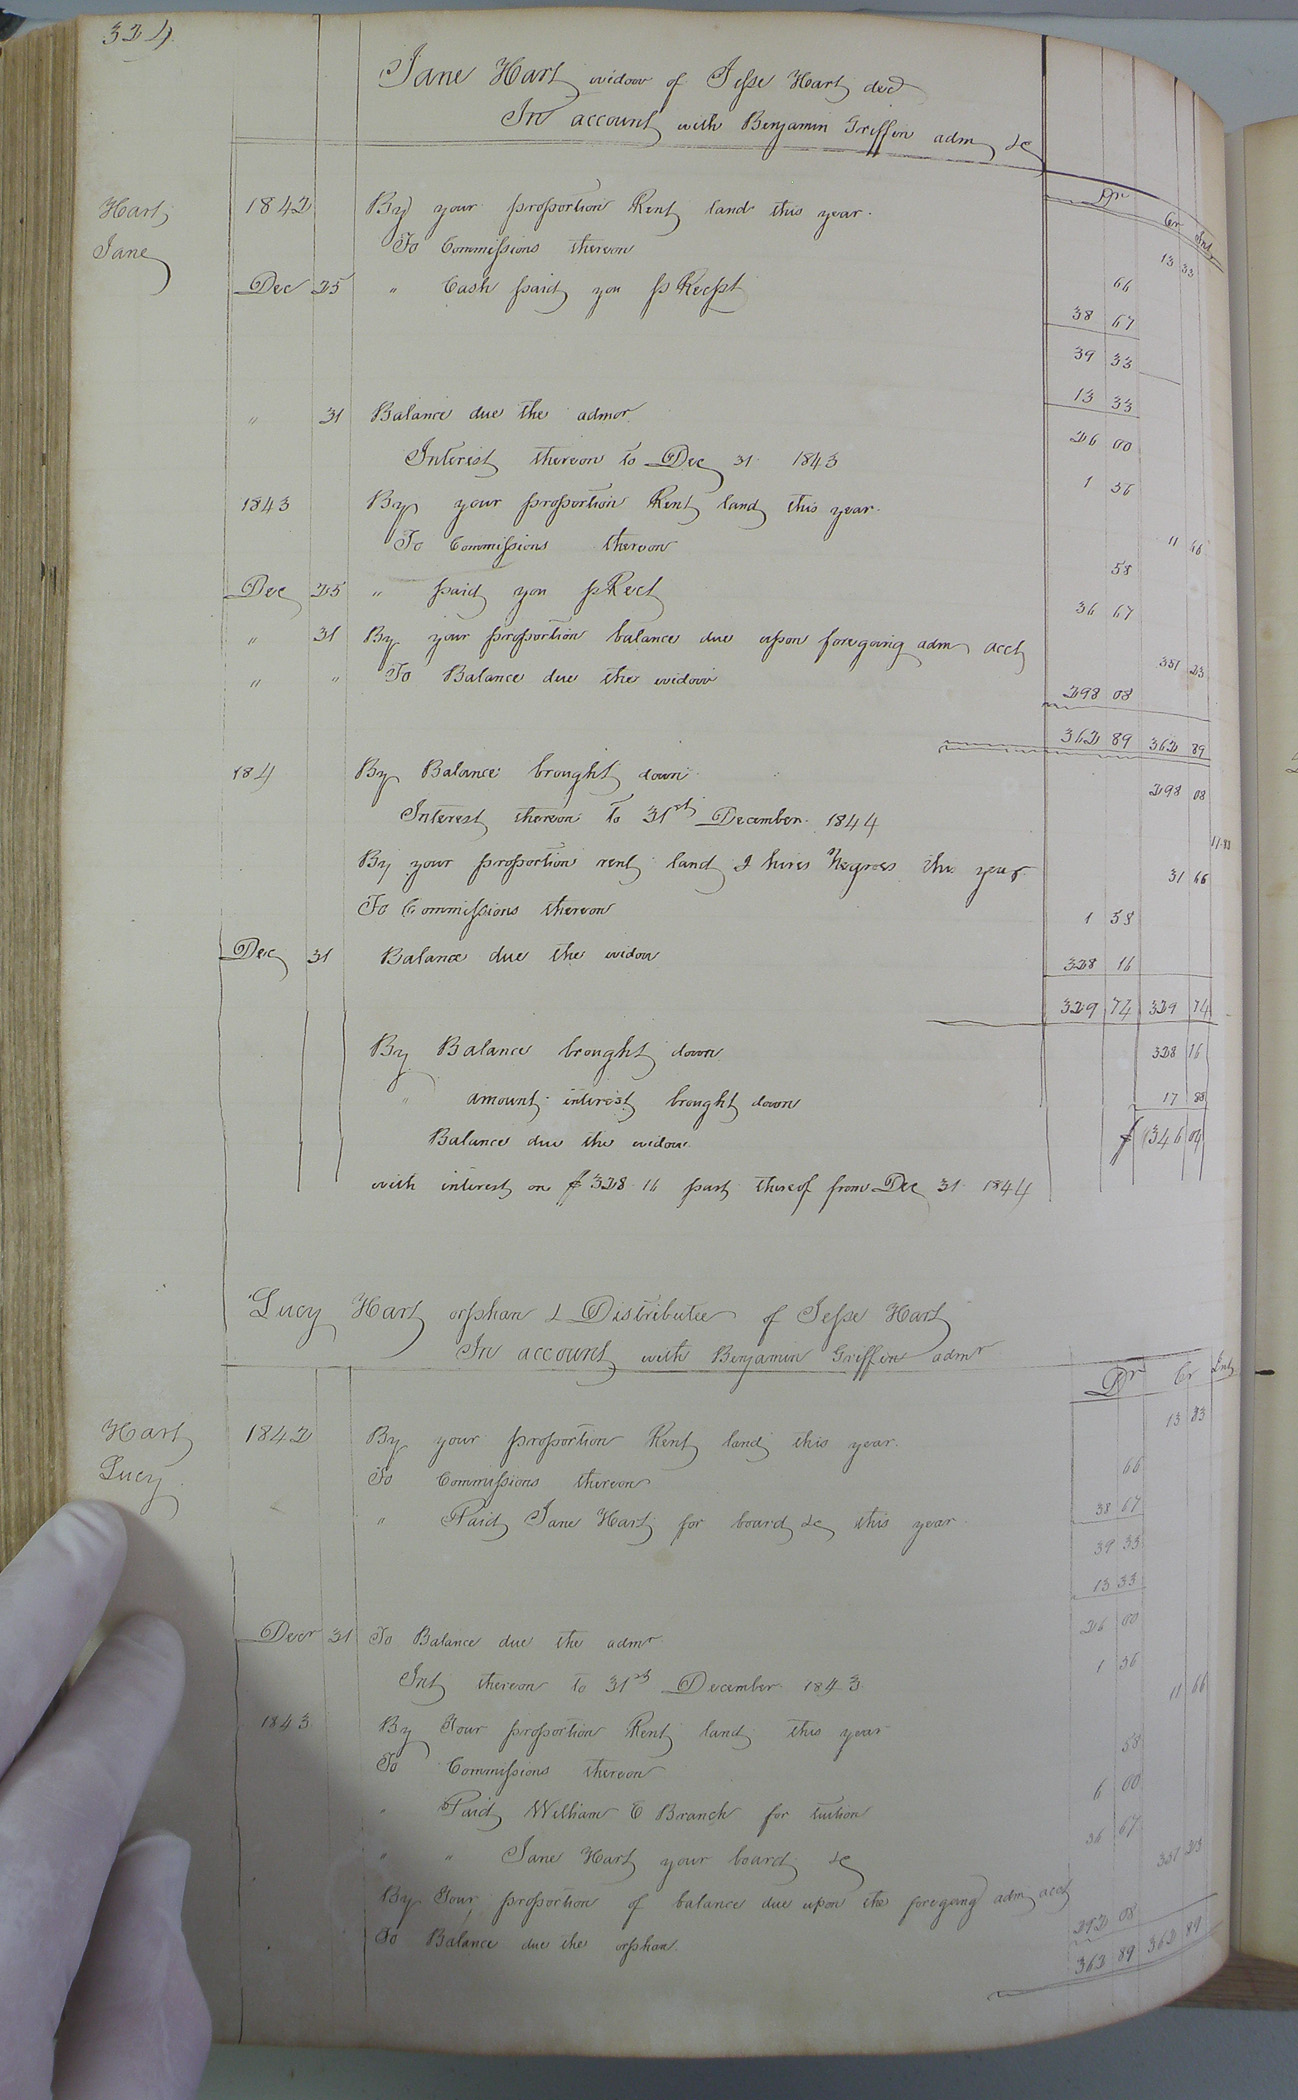 324
Jane Hart widow of Jesse Hart decd
In account with Benjamin Griffin adm &c
Dr Cr Int
Hart, Jane
1842 By your proportion Rent land this year. 13 33
To Commissions thereon 66
Dec 25 " Cash paid you p Recpt 38 67
39 33
13 33
" 31 Balance due the admor. 26 00
Interest thereon to Dec 31 1843 1 56
1843 By your proportion Rent land this year. 11 66
To Commissions thereon 58
Dec 25 " paid you p Rect 36 67
" 31 By your proportion balance due upon foregoing adm acct 351 23
" " To Balance due the widow 298 08
362 89 362 89
184 By Balance brought down 298 08
Interest thereon to 31st December 1844 17.88
By your proportion rent land & hires Negroes this year 31 66
To Commissions thereon 1 58
Dec 31 Balance due the widow 328 16
329 74 329 74
By Balance brought down 328 16
" amount interest brought down 17 88
Balance due the widow $ 346 04
with interest on $328 16 part thereof from Dec 31 1844
Lucy Hart orphan & Distributee of Jesse Hart
In account with Benjamin Griffin admr
Dr Cr Int
Hart Lucy
1842 By your proportion Rent land this year. 13 33
To Commissions thereon 66
" Paid Jane Hart for board &c this year 38 67
39 33
13 33
Decr 31 To Balance due the admr 26 00
Int thereon to 31st December 1843 1 56
1843 By Your proportion Rent land this year 11 66
To Commissions thereon 58
" Paid William E Branch for tuition 6 00
" " Jane Hart your board &c 36 67
By Your proportion of balance due upon the foregoing adm acct 351 23
To Balance due the orphan. 292 08
362 89 362 89